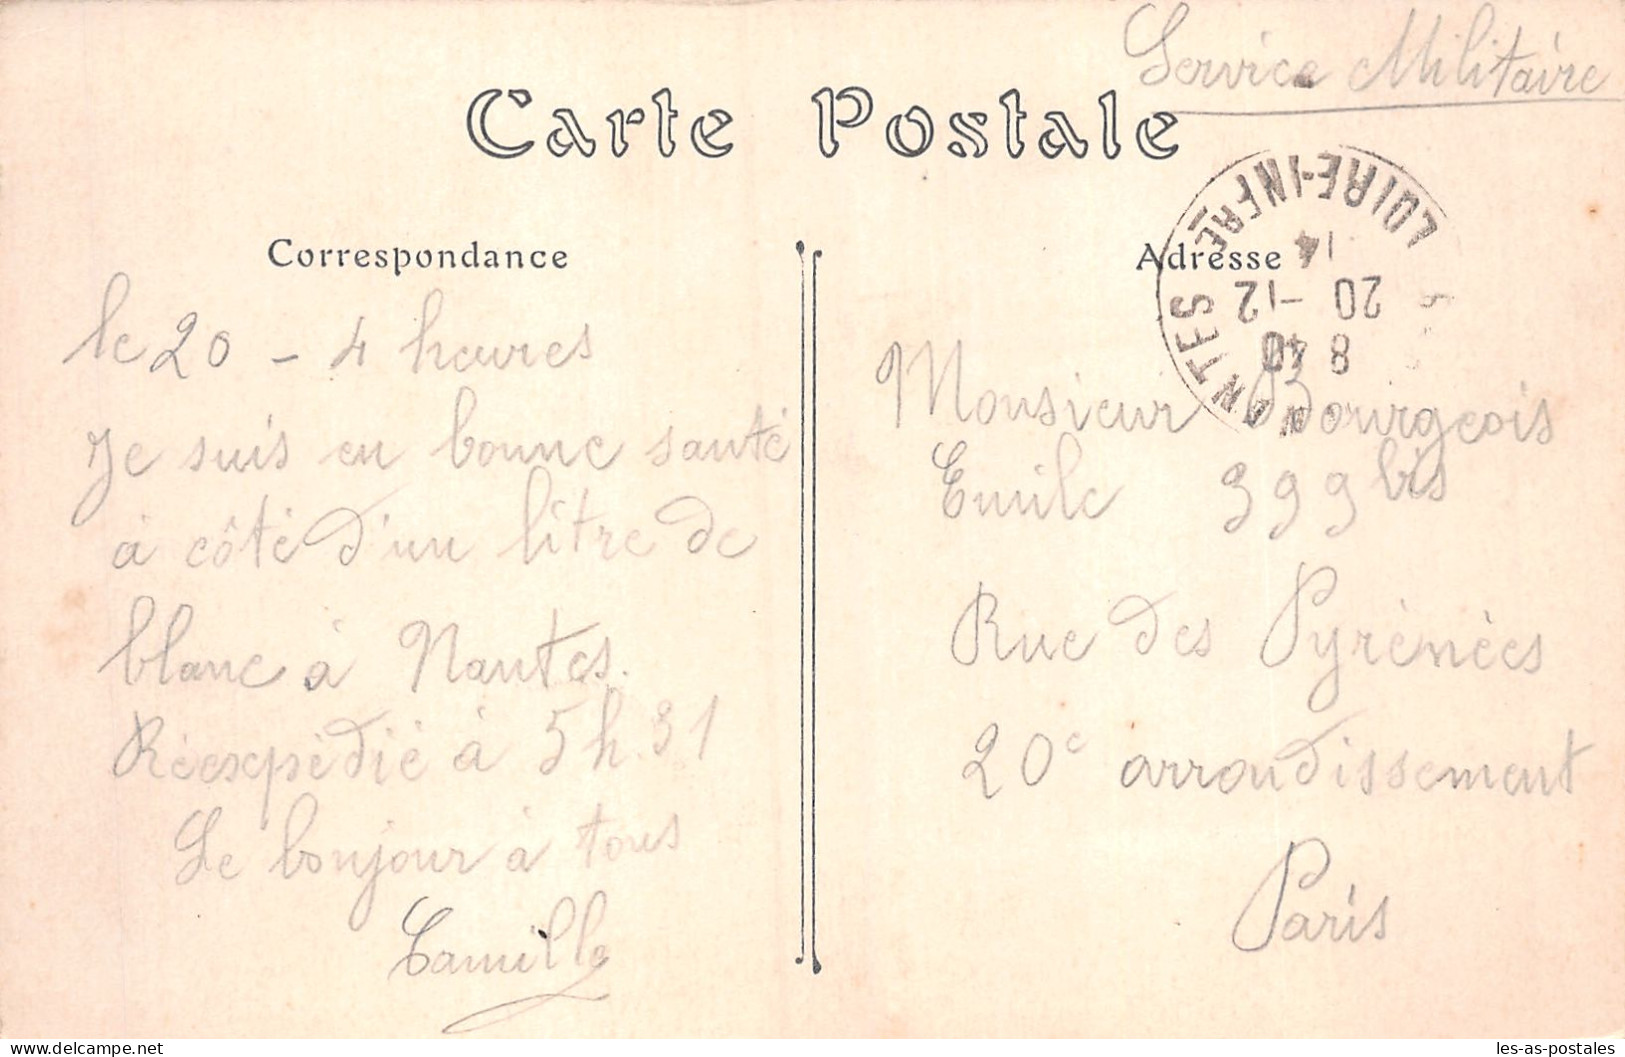 Service Militaire
Carte Postale
Correspondance
le 20 - 4 heures
Je suis en bonne santé
à côté d'un litre de
blanc à Nantes.
Réexpédié à 5h.31
Le bonjour à tous
Camille
Adresse
NANTES LOIRE-INFRE
8 40
20 -12
14
Monsieur Bourgeois
Emile 399 bis
Rue des Pyrénées
20e arrondissement
Paris
www.delcampe.net
les-as-postales